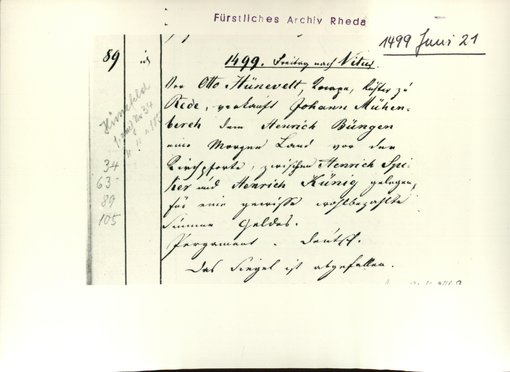 Fürstliches Archiv Rheda
1499 Juni 21
89
1499. Freitag nach Vitus.
Vor Otto Hünevelt, Küster zu
Rede, verkauft Johann Mühen-
berch dem Henrich Büngen
einen Morgen Land vor der
Kirchpforte, zwischen Henrich Spei-
ker und Henrich Künig gelegen,
für eine gewisse wohlbezahlte
Summe Geldes.
Pergament. Deutsch.
Das Siegel ist abgefallen.
34
63
89
105